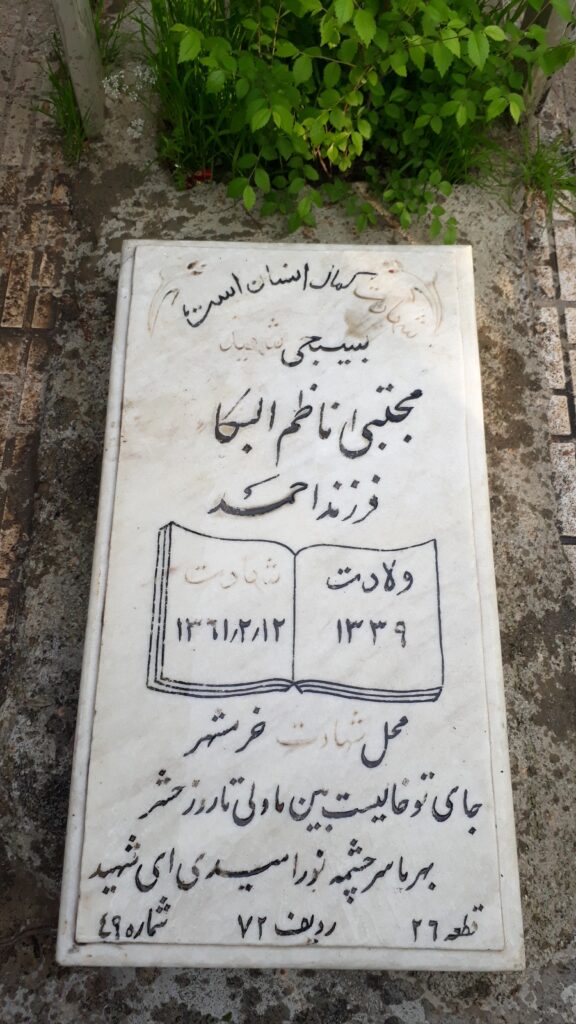 شهادت کمال انسان است
بسیجی شهید
مجتبی ناظم البکا
فرزند احمد
ولادت
۱۳۳۹
شهادت
۱۳۶۱/۲/۱۲
محل شهادت خرمشهر
جای تو خالیست بین ما ولی تا روز حشر
بهر ما سرچشمه نور امیدی ای شهید
قطعه ۲۶ ردیف ۷۲ شماره ۴۹